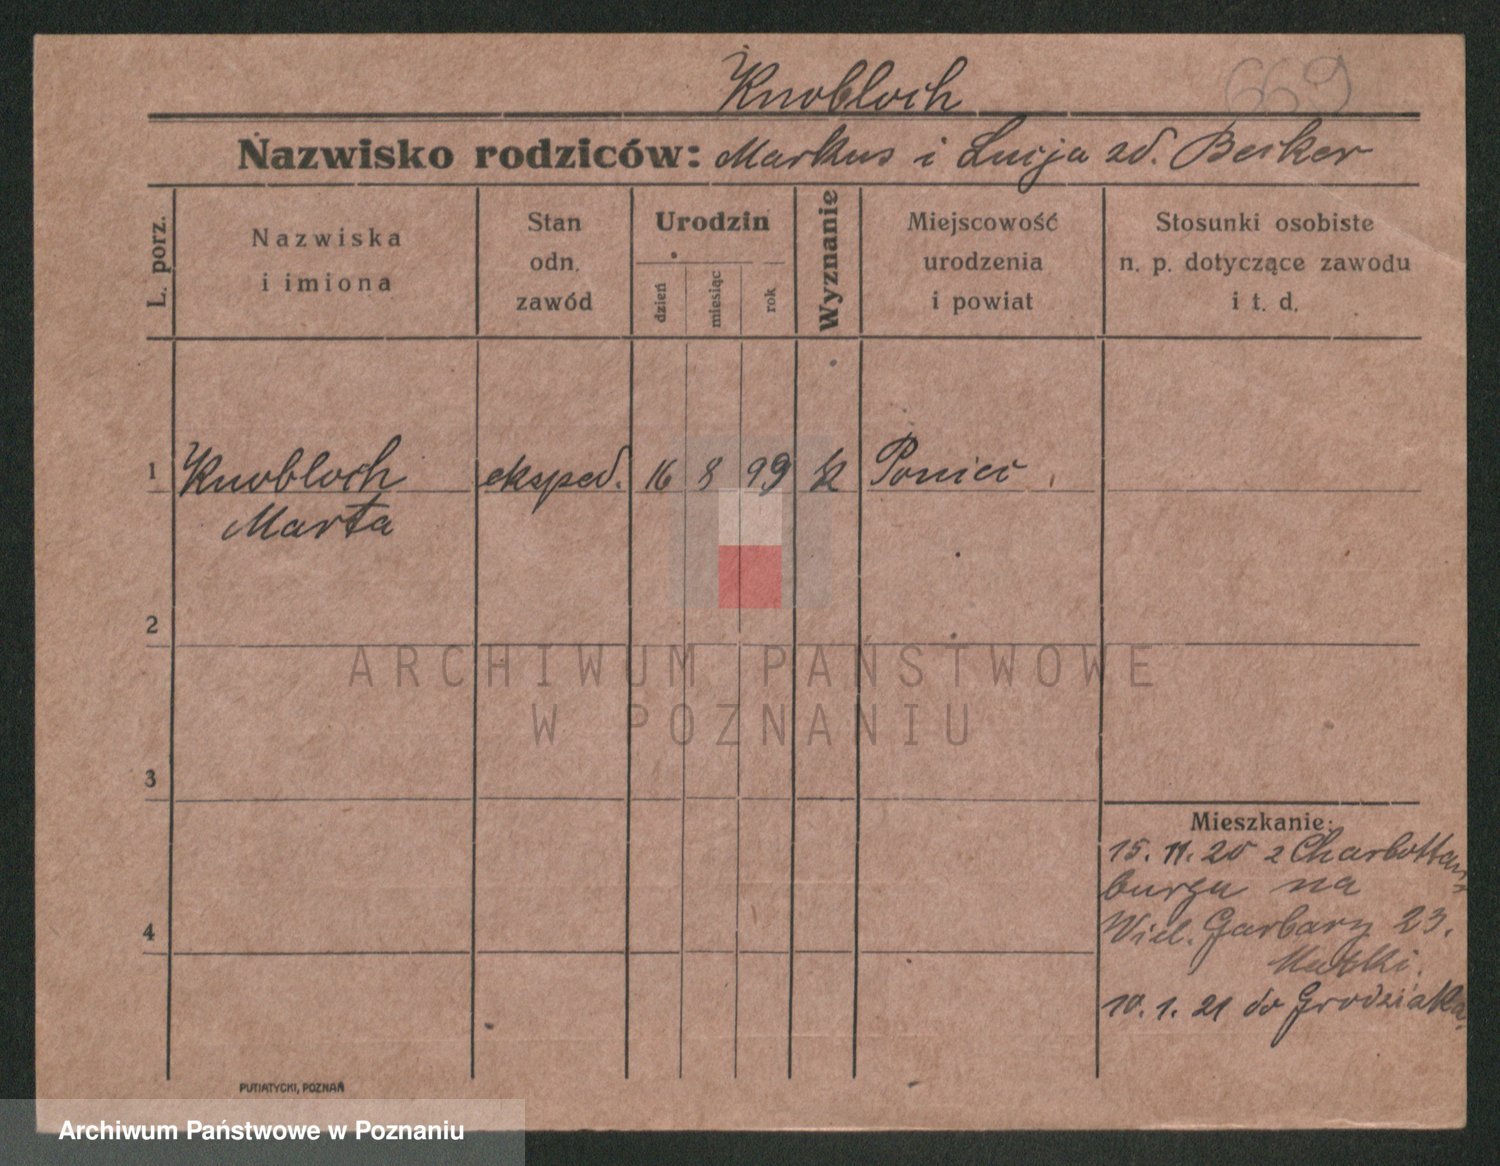 Knobloch
669
Nazwisko rodziców: Markus i Lucja zd. Becker
L. porz.
Nazwiska
i imiona
Stan
odn.
zawód
Urodzin
dzień
miesiąc
rok
Wyznanie
Miejscowość
urodzenia
i powiat
Stosunki osobiste
n. p. dotyczące zawodu
i t. d.
1 Knobloch eksped. 16 8 99 k Poniec
Marta
2
3
4
Mieszkanie:
15. 11. 20 z Charlotten
burga na
Wiel. Garbary 23.
10. 1. 21 do Grodziska
PUTIATYCKI, POZNAŃ
ARCHIWUM PAŃSTWOWE
W POZNANIU
Archiwum Państwowe w Poznaniu